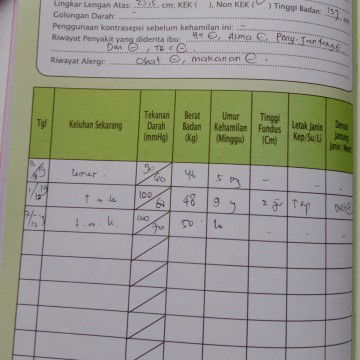 Lingkar Lengan Atas: 23,5 cm, KEK ( ), Non KEK (✓) Tinggi Badan: 157 cm
Golongan Darah:
Penggunaan kontrasepsi sebelum kehamilan ini: -
Riwayat Penyakit yang diderita ibu: HT ⊖, Asma ⊖, Peny. Jantung ⊖
DM ⊖, TBC ⊖
Riwayat Alergi: Obat ⊖, makanan ⊖
Tgl Keluhan Sekarang Tekanan Darah (mmHg) Berat Badan (Kg) Umur Kehamilan (Minggu) Tinggi Fundus (Cm) Letak Janin Kep/Su/Li Denyut Jantung Janin
90/60 46 5 mg - - -
t.a.k 100/60 48 9
t.a.k 100/70 50 - -